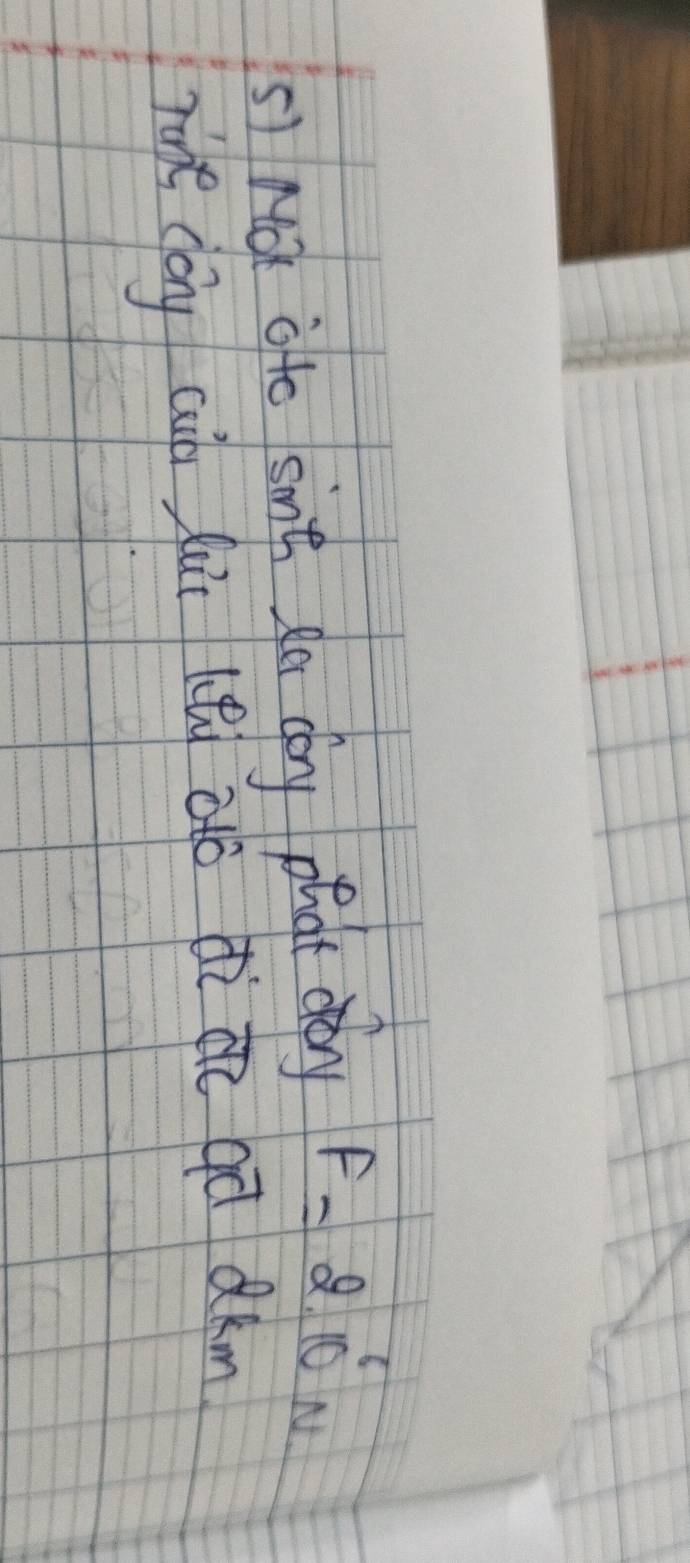 5) Một ôtô sinh ra công phát động F = 2.10⁶ N.
Tính công của lực khi ôtô đi đc qđ 2km.